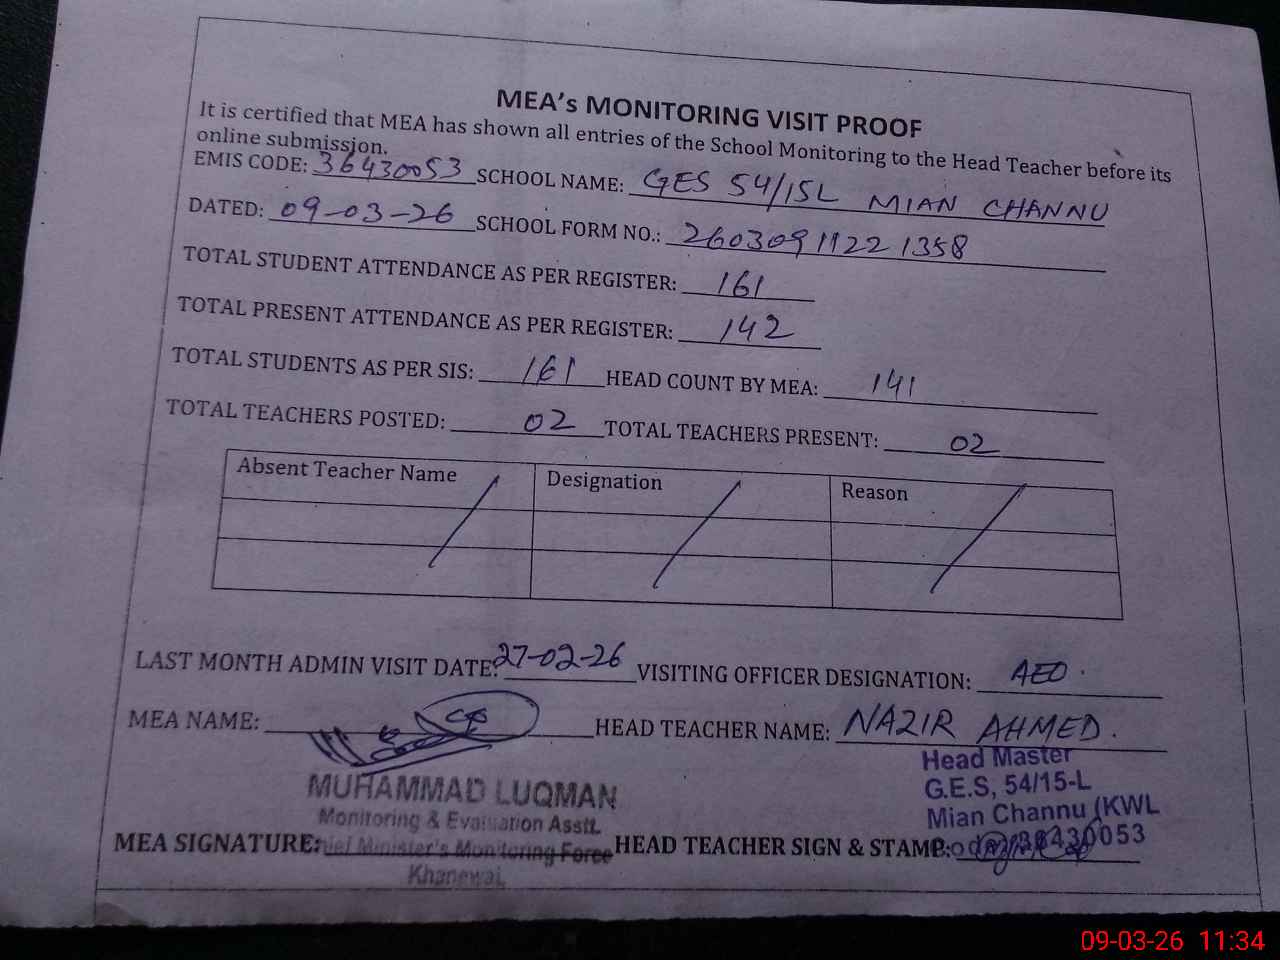 MEA's MONITORING VISIT PROOF
It is certified that MEA has shown all entries of the School Monitoring to the Head Teacher before its
online submission.
EMIS CODE: 36430053 SCHOOL NAME: GES 54/15L MIAN CHANNU
DATED: 09-03-26 SCHOOL FORM NO.: 2603091122 1358
TOTAL STUDENT ATTENDANCE AS PER REGISTER: 161
TOTAL PRESENT ATTENDANCE AS PER REGISTER: 142
TOTAL STUDENTS AS PER SIS: 161 HEAD COUNT BY MEA: 141
TOTAL TEACHERS POSTED: 02 TOTAL TEACHERS PRESENT: 02
Absent Teacher Name Designation Reason
LAST MONTH ADMIN VISIT DATE: 27-02-26 VISITING OFFICER DESIGNATION: AEO.
MEA NAME: HEAD TEACHER NAME: NAZIR AHMED.
Head Master
G.E.S, 54/15-L
Mian Channu (KWL
MUHAMMAD LUQMAN
Monitoring & Evaluation Asstt.
MEA SIGNATURE: Chief Minister's Monitoring Force HEAD TEACHER SIGN & STAMP: Code 36430053
Khanewal.
09-03-26 11:34